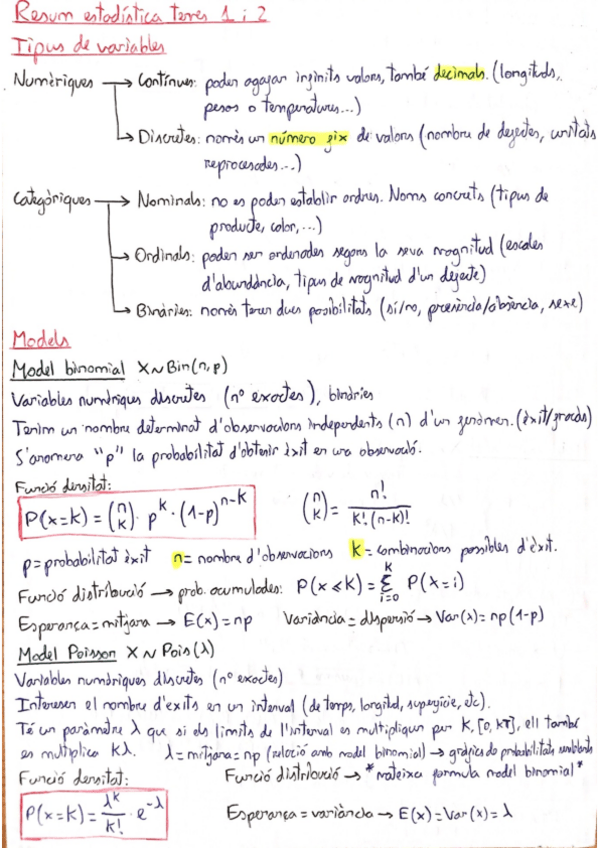 Resum estadística temes 1 i 2
Tipus de variables
Numèriques → Contínues: poden agafar infinits valors, també decimals. (longituds,
pesos o temperatures...)
→ Discretes: només un número fix de valors (nombre de defectes, unitats
reprocesades...)
Categòriques → Nominals: no es poden establir ordres. Noms concrets (tipus de
producte, color,...)
→ Ordinals: poden ser ordenades segons la seva magnitud (escales
d'abundància, tipus de magnitud d'un defecte)
→ Binàries: només tenen dues posibilitats (sí/no, presència/absència, sexe)
Models
Model binomial X~Bin(n,p)
Variables numèriques discretes (nº exactes), binàries
Tenim un nombre determinat d'observacions independents (n) d'un fenòmen. (èxit/fracàs)
S'anomena "p" la probabilitat d'obtenir èxit en una observació.
Funció densitat:
P(x=k) = (n k) · p^k · (1-p)^n-k (n k) = n! / k!·(n-k)!
p=probabilitat èxit n= nombre d'observacions k= combinacions possibles d'èxit.
Funció distribució → prob. acumulades: P(x≤k) = Σ k i=0 P(x=i)
Esperança=mitjana → E(x)=np Variància=dispersió → Var(x)=np(1-p)
Model Poisson X~Pois(λ)
Variables numèriques discretes (nº exactes)
Interesen el nombre d'exits en un interval (de temps, longitud, superfície, etc).
Té un paràmetre λ que si els límits de l'interval es multipliquen per K, [0, KT], ell també
es multiplica Kλ. λ=mitjana=np (relació amb model binomial) → gràfics de probabilitats semblants
Funció densitat: Funció distribució → *mateixa formula model binomial*
P(x=k) = λ^k / k! · e^-λ Esperança=variància → E(x)=Var(x)=λ